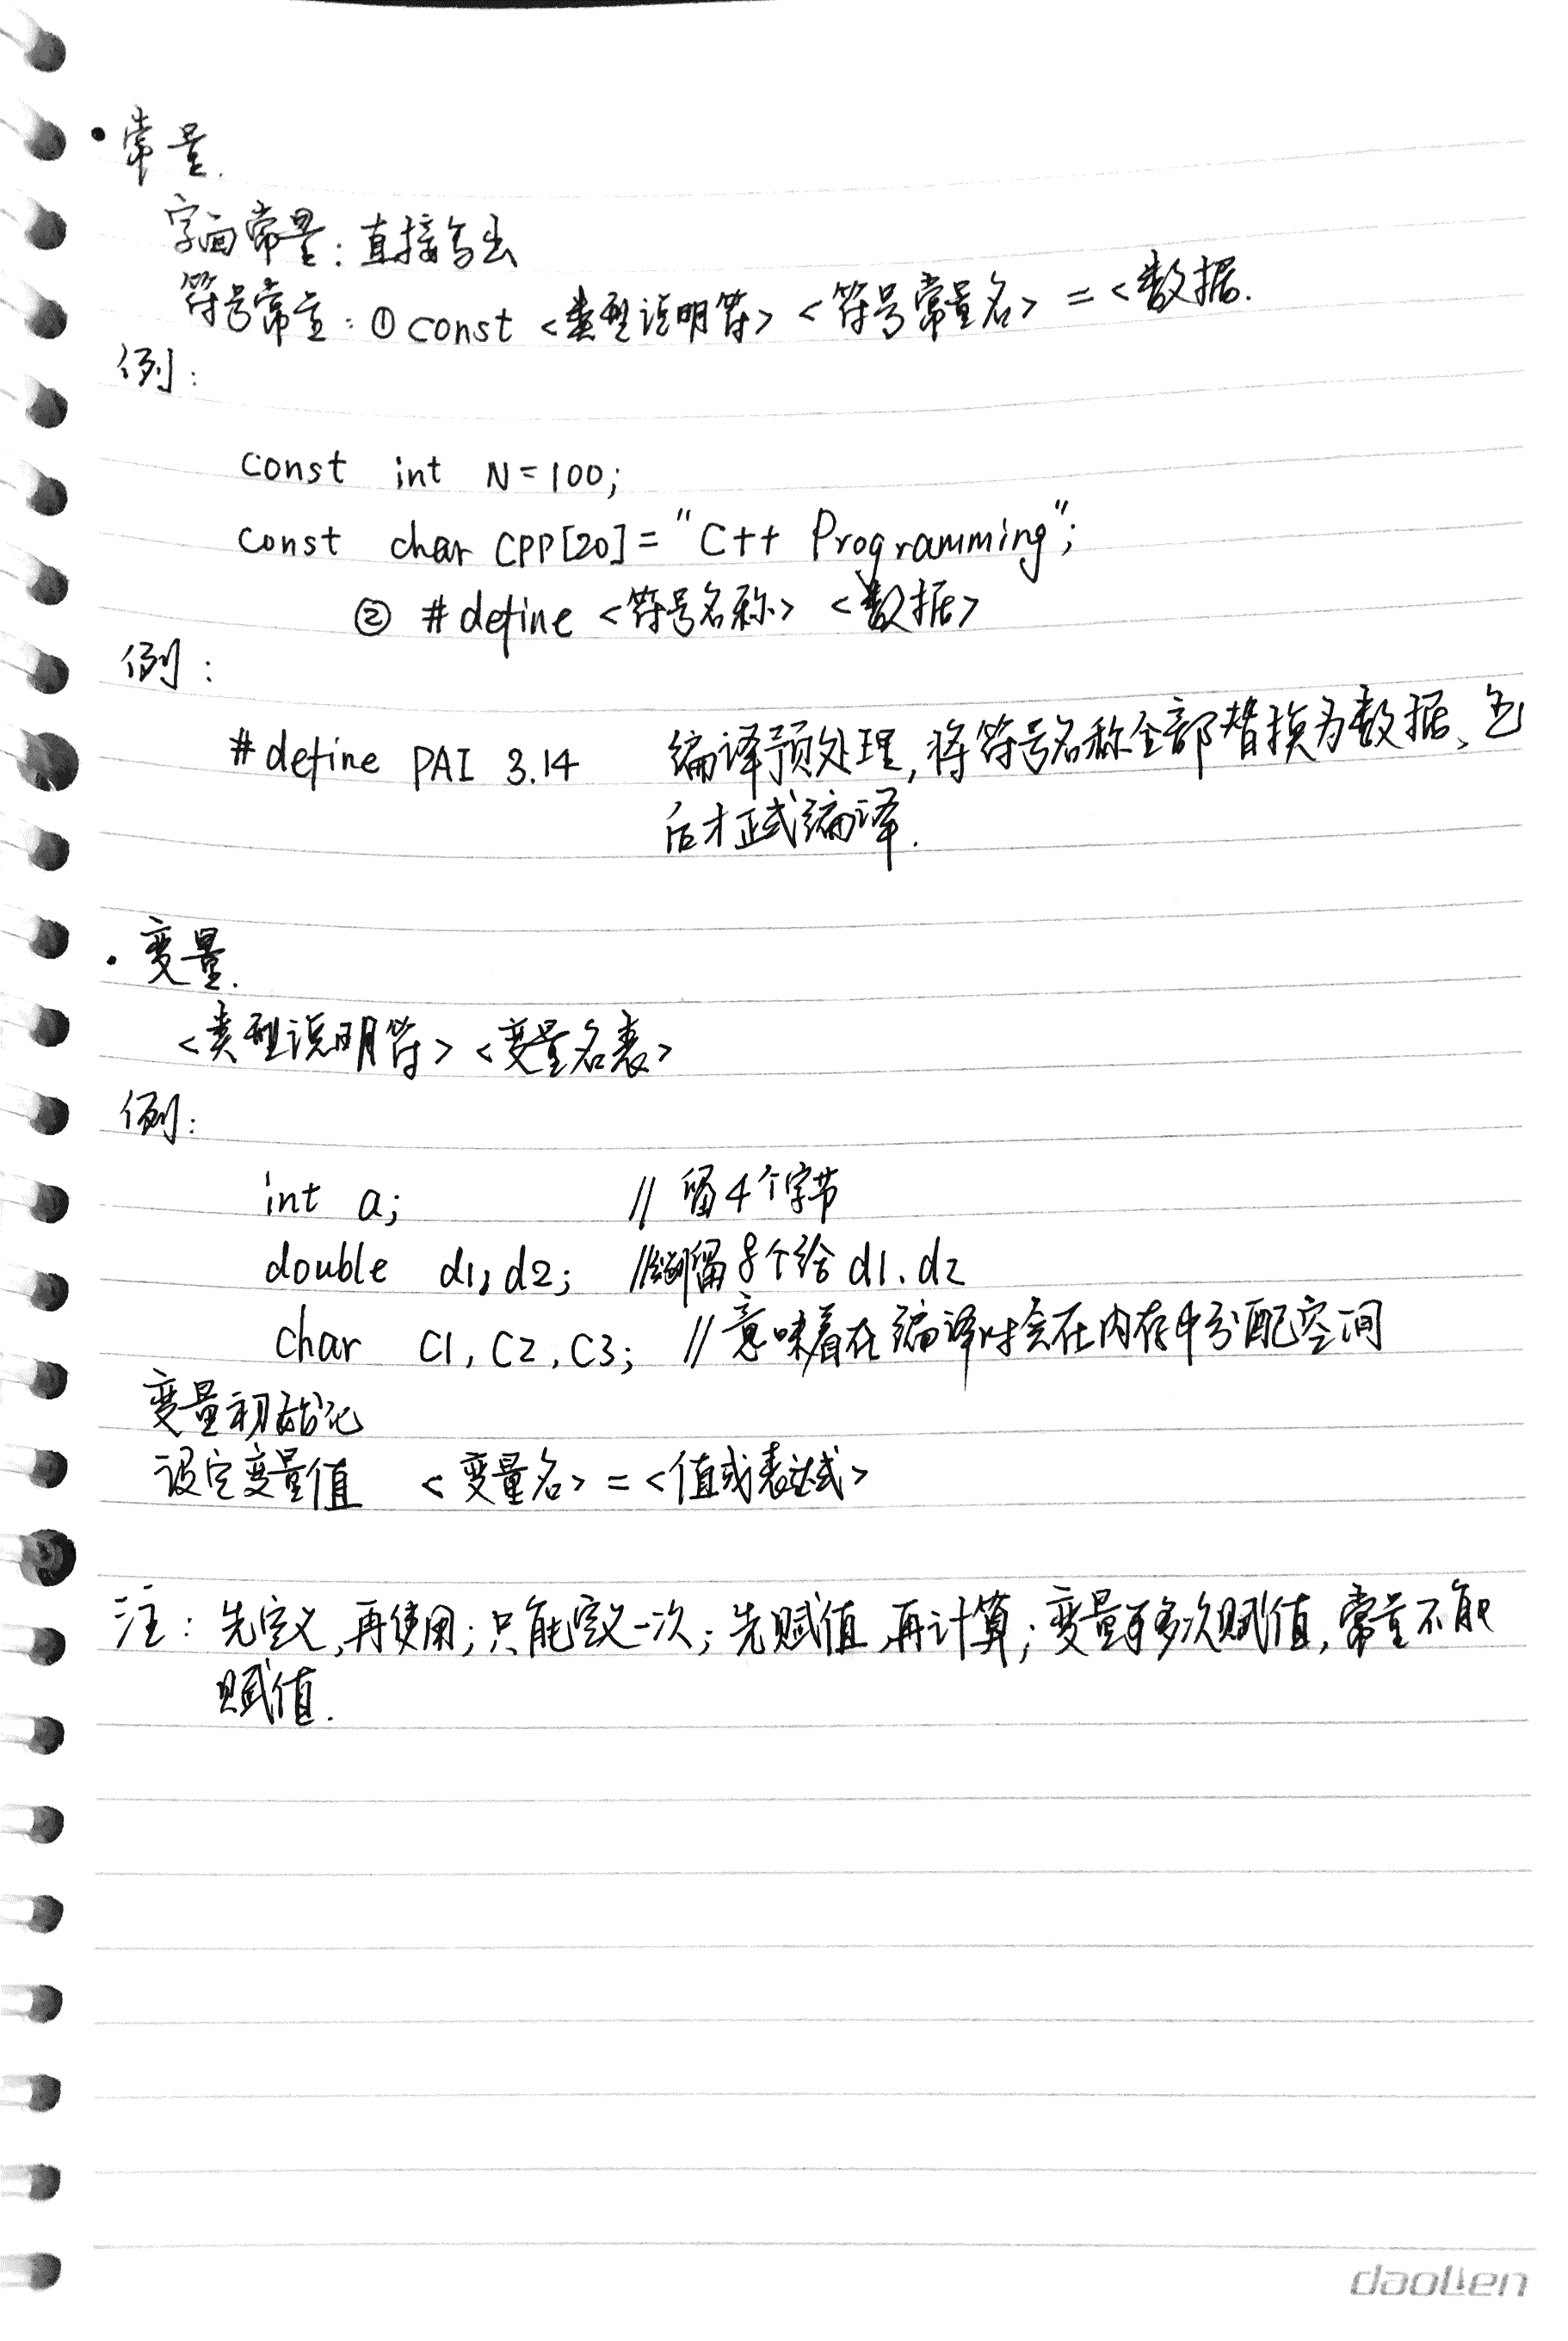 •常量.
字面常量:直接写出
符号常量:①const <类型说明符> <符号常量名> = <数据.
例:
const int N=100;
const char CPP[20]="C++ Programming";
② #define <符号名称> <数据>
例:
#define PAI 3.14 编译预处理,将符号名称全部替换为数据、
后才正式编译.
•变量.
<类型说明符> <变量名表>
例:
int a; //留4个字节
double d1,d2; //留8个给d1、d2
char C1,C2,C3; //意味着在编译时会在内存中分配空间
变量初始化
设定变量值 <变量名> = <值或表达式>
注:先定义,再使用;只能定义一次;先赋值,再计算;变量可多次赋值,常量不能
赋值.
daolen